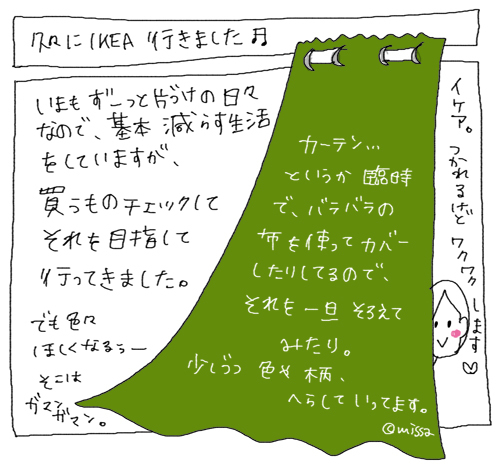 久々にIKEA 行きました♫
いまも ずーっと片づけの日々
なので、基本 減らす生活
をしていますが、
買うものチェックして
それを目指して
行ってきました。
でも色々
ほしくなるぅー
そこは
ガマン
ガマン。
カーテン…
というか 臨時
で、バラバラの
布を使って カバー
したりしてるので、
それを 一旦 そろえて
みたり。
少しづつ 色や 柄、
へらして いってます。
©missa
イケア。つかれるけど ワクワクします♡